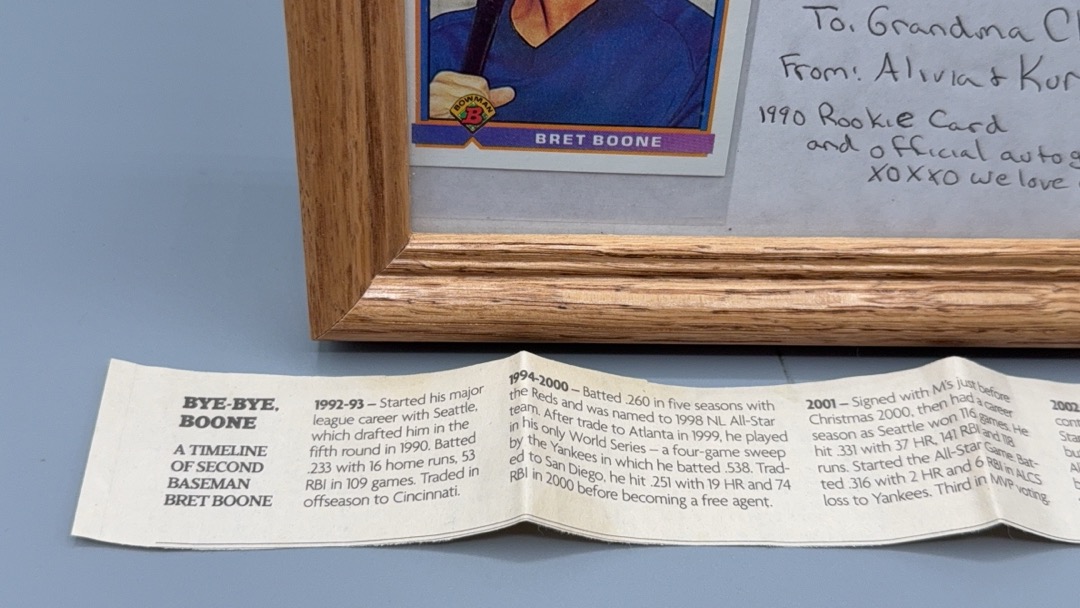 BOWMAN
B
BRET BOONE
To: Grandma
From: Alivia &
1990 Rookie Card
and official
XOXXO we love
BYE-BYE,
BOONE
A TIMELINE
OF SECOND
BASEMAN
BRET BOONE
1992-93 – Started his major
league career with Seattle,
which drafted him in the
fifth round in 1990. Batted
.233 with 16 home runs, 53
RBI in 109 games. Traded in
offseason to Cincinnati.
1994-2000 – Batted .260 in five seasons with
the Reds and was named to 1998 NL All-Star
team. After trade to Atlanta in 1999, he played
in his only World Series – a four-game sweep
by the Yankees in which he batted .538. Trad-
ed to San Diego, he hit .251 with 19 HR and 74
RBI in 2000 before becoming a free agent.
2001 – Signed with M's just before
Christmas 2000, then had a career
season as Seattle won 116 games. He
hit .331 with 37 HR, 141 RBI and 118
runs. Started the All-Star Game. Bat-
ted .316 with 2 HR and 6 RBI in ALCS
loss to Yankees. Third in MVP voting.
2002